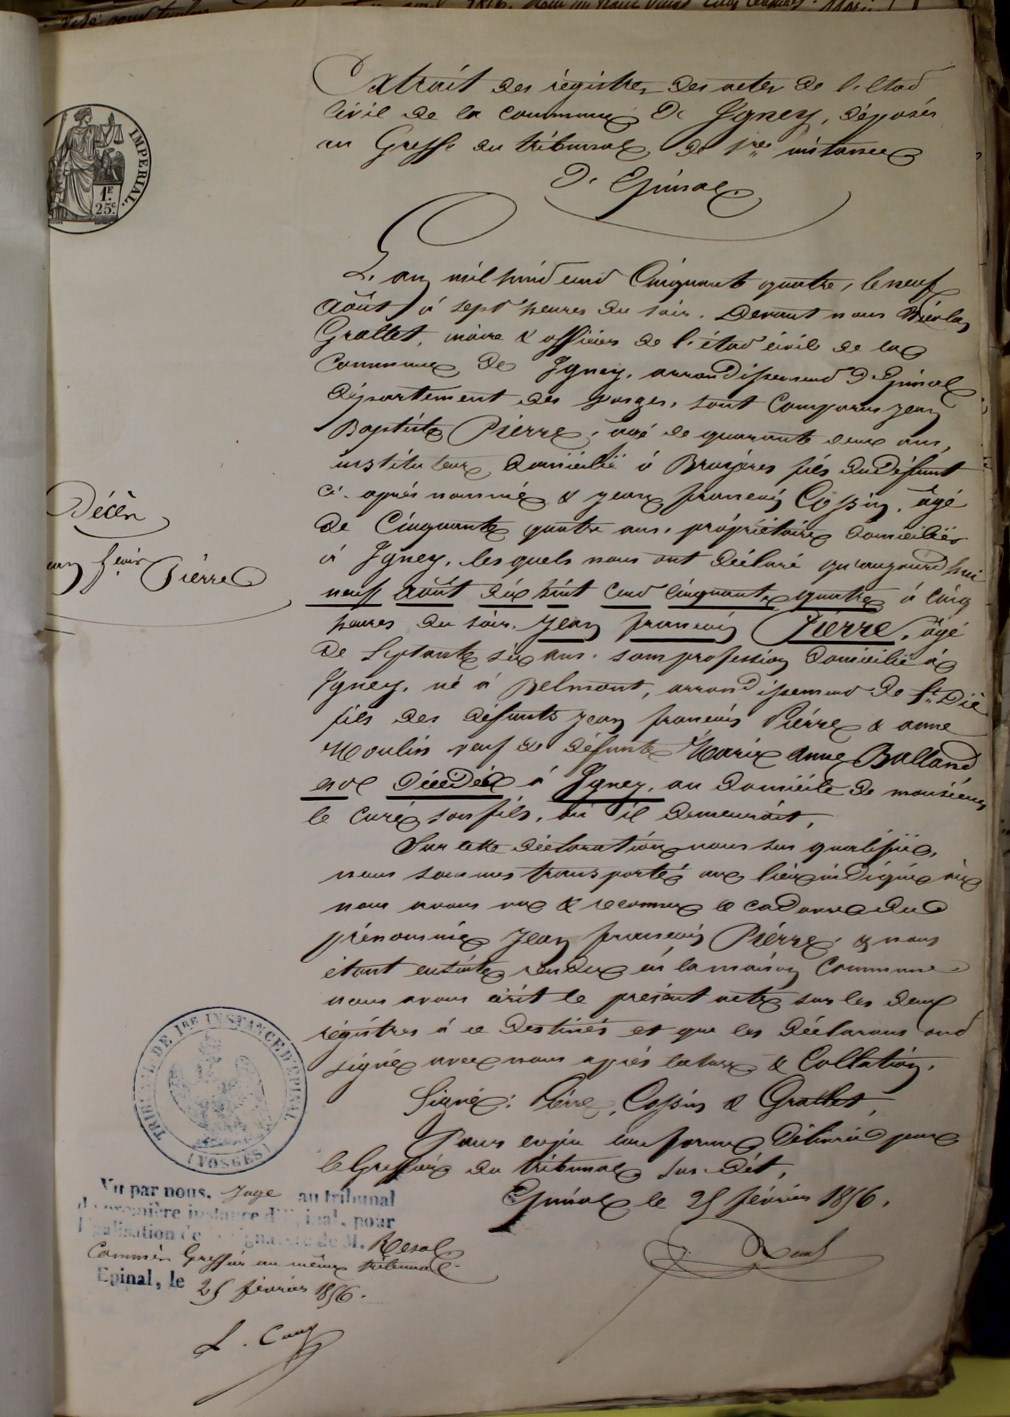 Extrait des régistres des actes de l'état
civil de la commune d' Igney, déposés
au Greffe du tribunal de 1re instance
d'Epinal
IMPERIAL.
1F
25c
L'an mil huit cent cinquante quatre, le neuf
août à sept heures du soir. Devant nous Nicolas
Grallet, maire & officier de l'état civil de la
commune de Igney, arrondissement d'Epinal
département des Vosges, sont comparus Jean
Baptiste Pierre, âgé de quarante deux ans,
instituteur, domicilié à Bruyères fils du défunt
ci-après nommé & Jean françois Cossin, âgé
de Cinquante quatre ans, propriétaire domicilié
à Igney, lesquels nous ont déclaré qu'aujourd'hui
neuf août dix huit cent cinquante quatre à cinq
heures du soir, Jean françois Pierre, âgé
de septante six ans, sans profession domicilié à
Igney, né à Belmont, arrondissement de St. Dié
fils des défunts Jean françois Pierre & anne
Moulin veuf de défunte Marie Anne Balland
est décédé à Igney, au domicile de monsieur
le curé son fils, où il demeurait,
Sur cette déclaration nous sus qualifié,
nous sommes transporté au lieu indiqué où
nous avons vu & reconnu le cadavre du
prénommé Jean françois Pierre, & nous
étant ensuite rendu en la maison Commune
nous avons écrit le présent acte sur les deux
régistres à ce destinés et que les déclarants ont
signé avec nous après lecture & Collation.
Signé: Pierre, Cossin & Grallet,
Pour copie conforme délivrée par
le Greffier du tribunal sus-dit,
Epinal le 25 février 1856.
Décès
Jean fçois Pierre
TRIBUNAL DE 1RE INSTANCE D'EPINAL
(VOSGES)
Vu par nous, Juge au tribunal
de première instance d'Epinal, pour
légalisation de la signature de M.
Commis Greffier au même tribunal.
Epinal, le 25 février 1856.